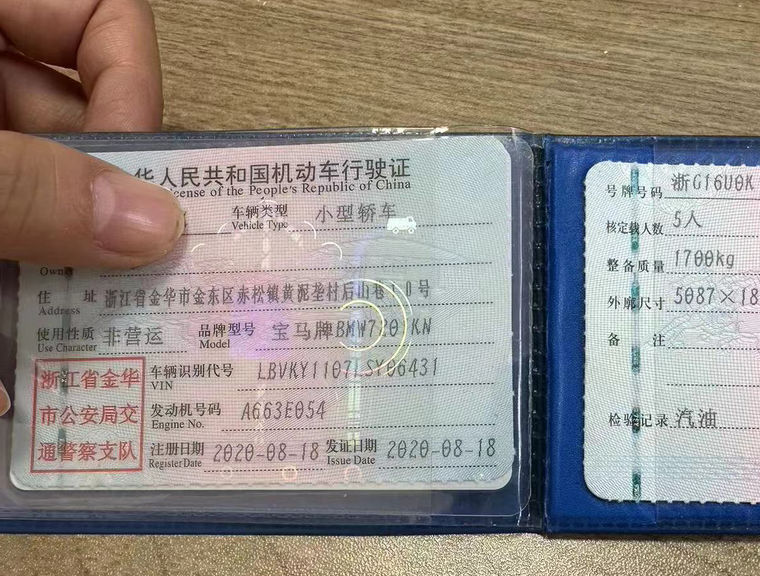 华人民共和国机动车行驶证
License of the People's Republic of China
车辆类型 小型轿车
Vehicle Type
Owner
住 址 浙江省金华市金东区赤松镇黄泥垄村后山巷10号
Address
使用性质 非营运 品牌型号 宝马牌BMW7201KN
Use Character Model
车辆识别代号 LBVKY1107LSY06431
VIN
发动机号码 A663E054
Engine No.
注册日期 2020-08-18 发证日期 2020-08-18
Register Date Issue Date
浙江省金华
市公安局交
通警察支队
号牌号码 浙G16U0K
核定载人数 5人
整备质量 1700kg
外廓尺寸 5087×18
备 注
检验记录 汽油